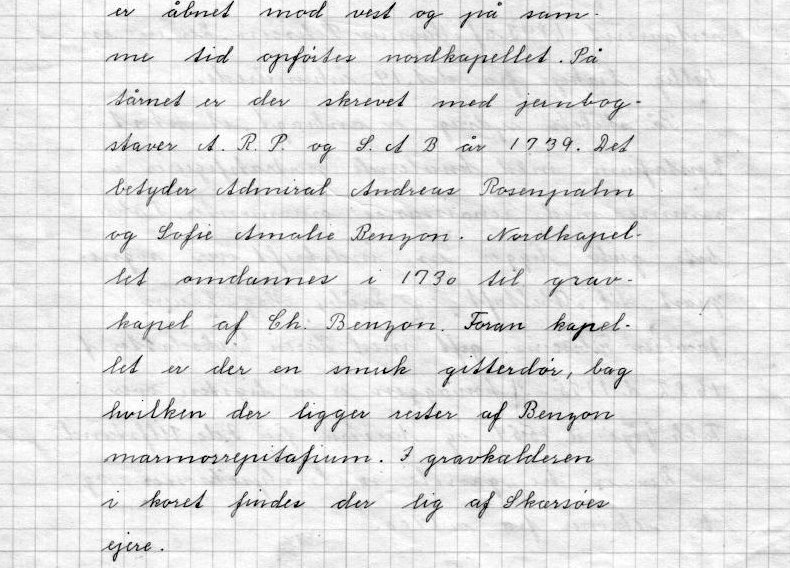 er åbnet mod vest og på sam-
me tid opførtes nordkapellet. På
tårnet er der skrevet med jernbog-
staver A. R. P. og S. A B år 1739. Det
betyder Admiral Andreas Rosenpalm
og Sofie Amalie Benzon. Nordkapel-
let omdannes i 1730 til grav-
kapel af Ch. Benzon. Foran kapel-
let er der en smuk gitterdør, bag
hvilken der ligger rester af Benzon
marmorrepitafium. I gravkælderen
i koret findes der lig af Skærsøes
ejere.